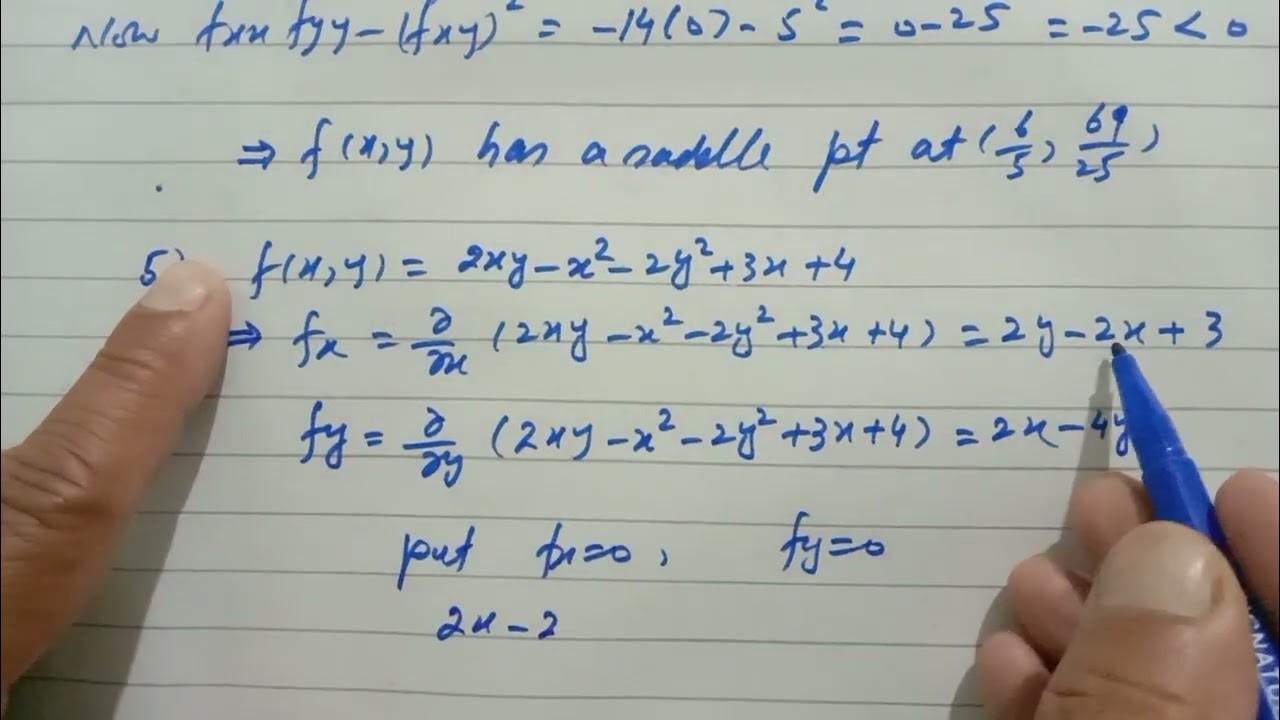 Now fxx fyy - (fxy)² = -14(0) - 5² = 0 - 25 = -25 < 0
⇒ f(x,y) has a saddle pt at (6/5, 69/25)
5) f(x,y) = 2xy - x² - 2y² + 3x + 4
⇒ fx = ∂/∂x (2xy - x² - 2y² + 3x + 4) = 2y - 2x + 3
fy = ∂/∂y (2xy - x² - 2y² + 3x + 4) = 2x - 4y
put fx = 0, fy = 0
2x - 2